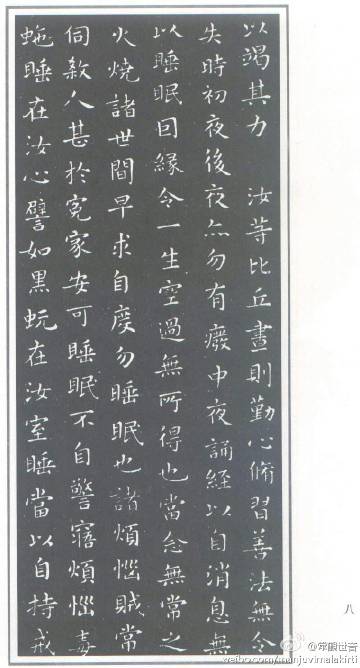 以竭其力　汝等比丘晝則勤心脩習善法無令
失時初夜後夜亦勿有癈中夜誦經以自消息無
以睡眠因緣令一生空過無所得也當念無常之
火燒諸世間早求自度勿睡眠也諸煩惱賊常
伺煞人甚於寃家安可睡眠不自警寤煩惱毒
虵睡在汝心譬如黑蚖在汝室睡當以自持戒
八
@常觀世音
weibo.com/manjuvimalakirti